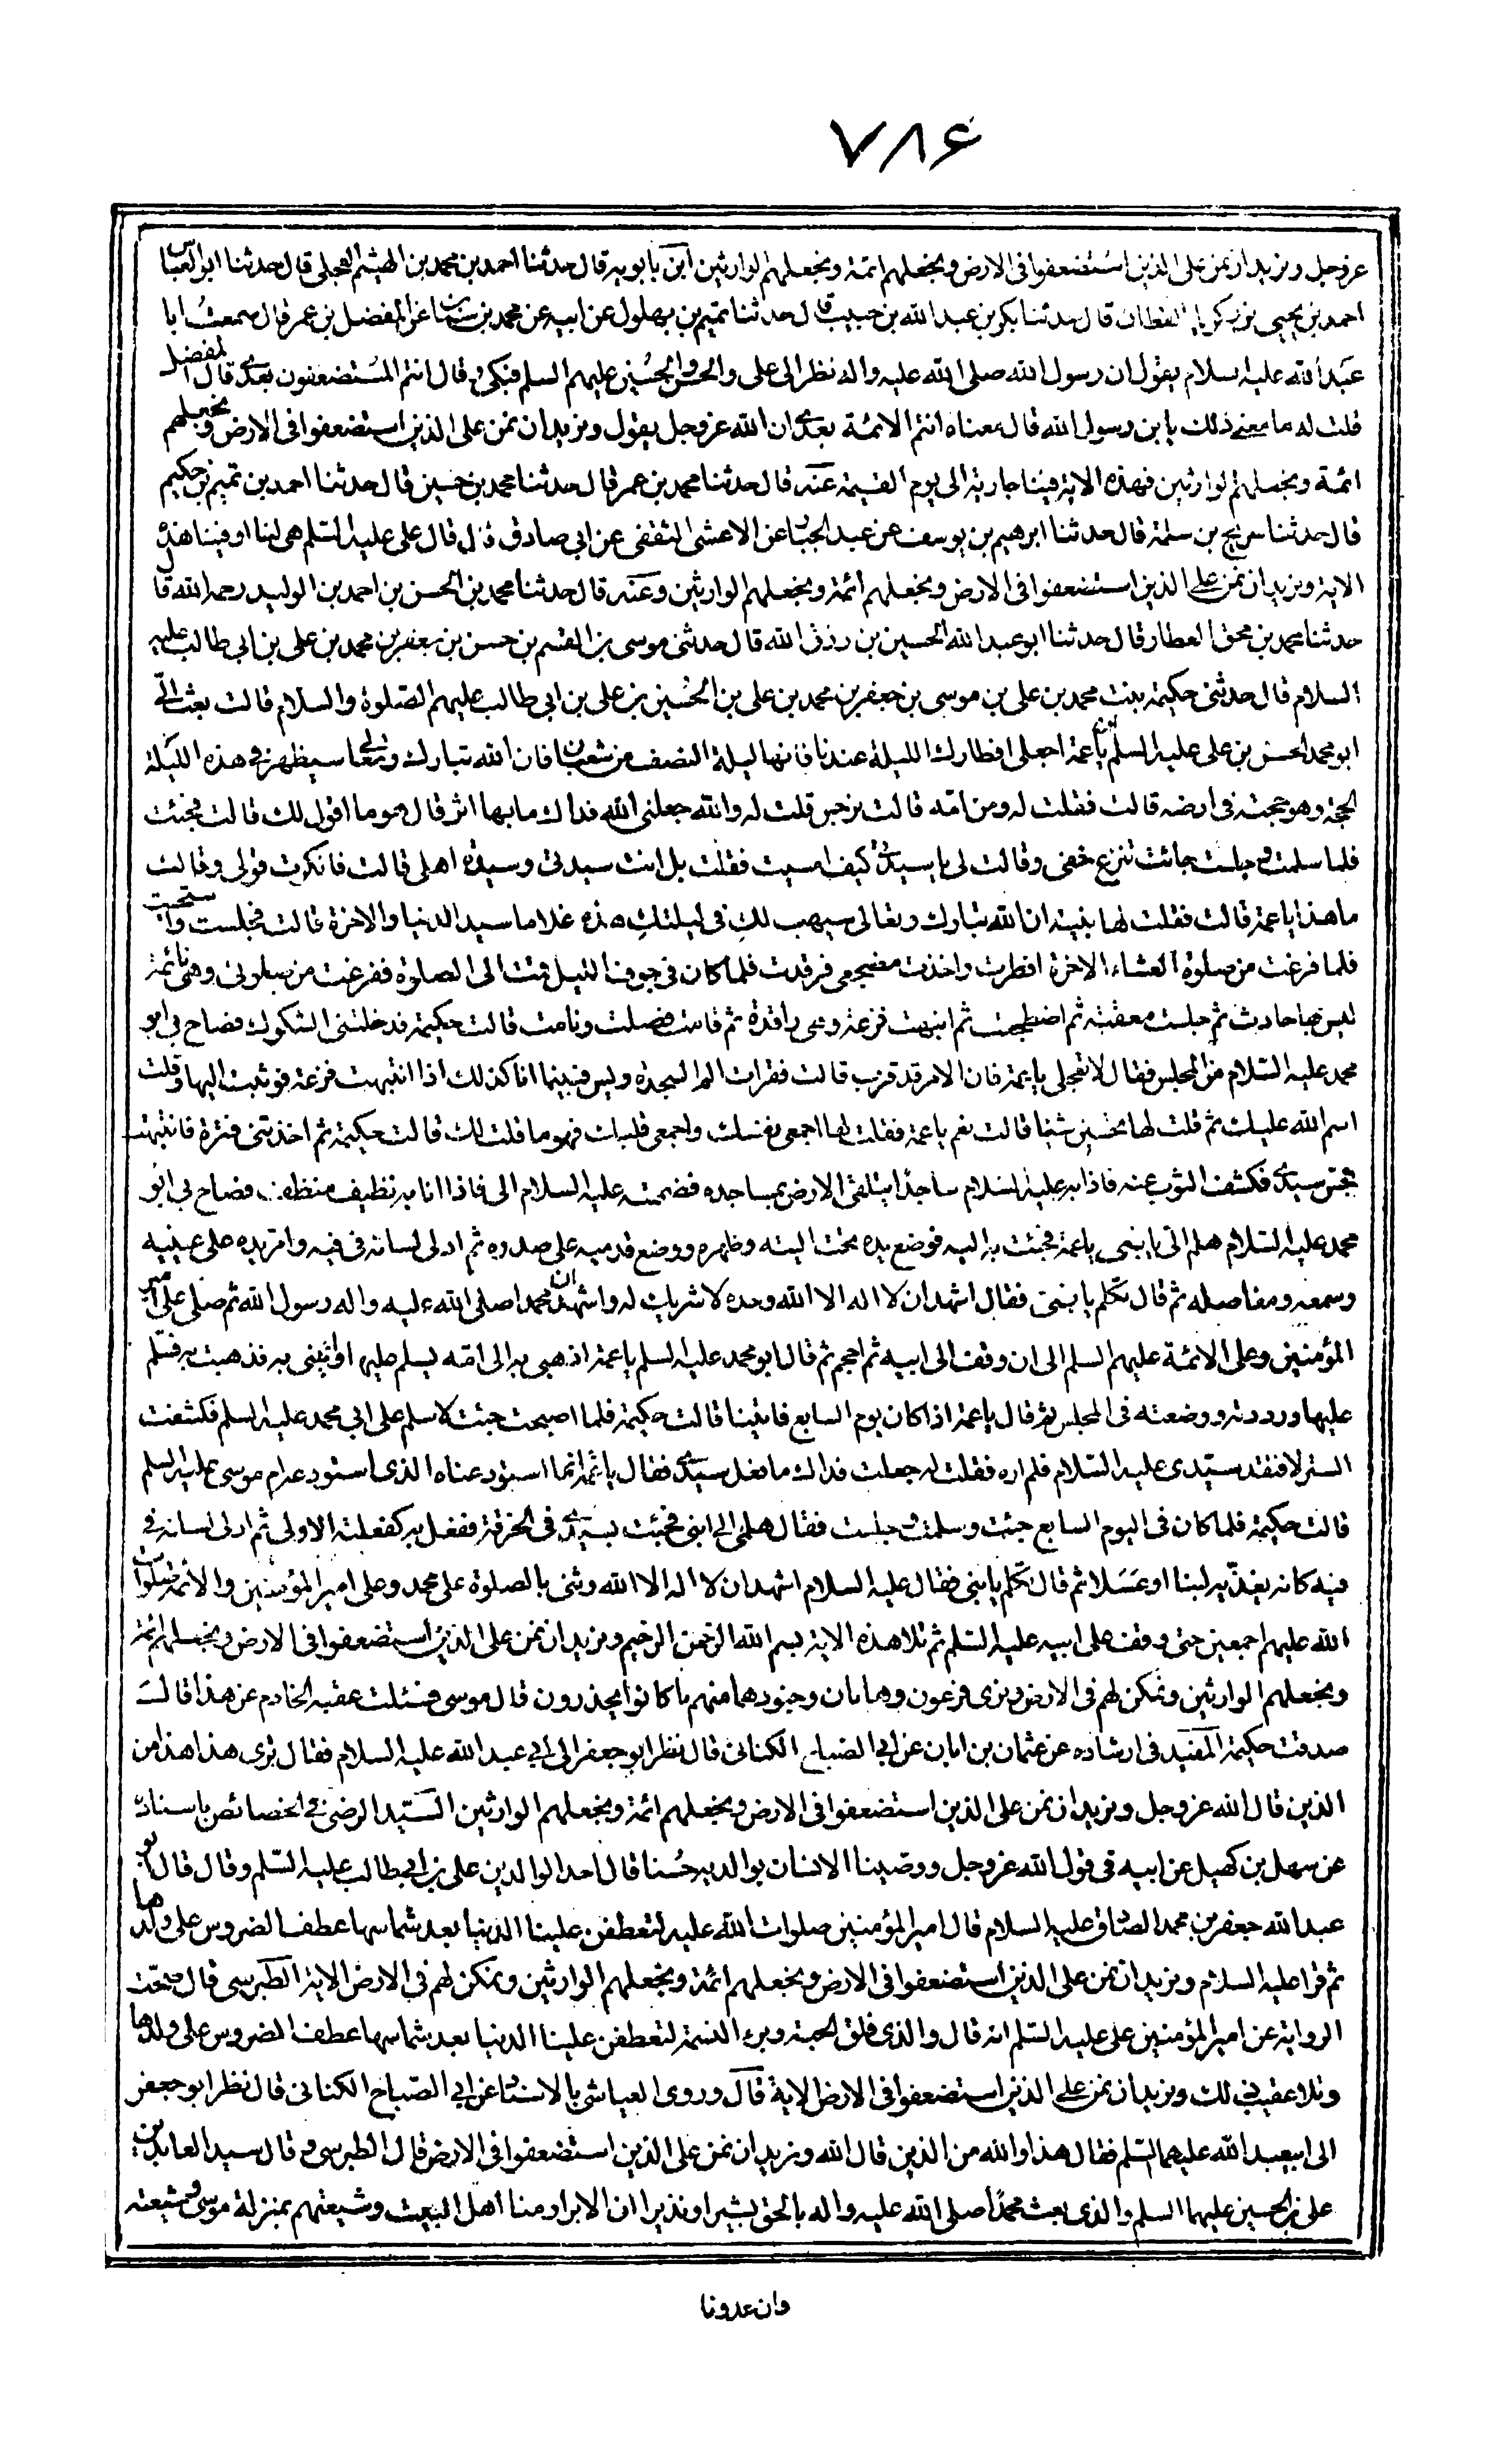 ٧٨۶
عزوجل ونريد ان نمن على الذين استضعفوا فى الارض ونجعلهم ائمة ونجعلهم الوارثين ابن بابويه قال حدثنا احمد بن محمد بن الهيثم العجلى قال حدثنا ابو العباس
احمد بن يحيى بن زكريا القطان قال حدثنا بكر بن عبد الله بن حبيب قال حدثنا تميم بن بهلول عن ابيه عن محمد بن سنان عن المفضل بن عمر قال سمعت ابا
عبد الله عليه السلام يقول ان رسول الله صلى الله عليه واله نظر الى على والحسن والحسين عليهم السلم فبكى وقال انتم المستضعفون بعدى قال المفضل
قلت له ما معنى ذلك يا بن رسول الله قال معناه انتم الائمة بعدى ان الله عزوجل يقول ونريد ان نمن على الذين استضعفوا فى الارض ونجعلهم
ائمة ونجعلهم الوارثين فهذه الاية فينا جارية الى يوم القيمة عنه قال حدثنا محمد بن عمر قال حدثنا محمد بن حسين قال حدثنا احمد بن تميم بن حكيم
قال حدثنا سريج بن سلمة قال حدثنا ابرهيم بن يوسف عن عبد الجبار عن الاعشى الثقفى عن ابى صادق قال قال على عليه السلم هى لنا او فينا هذه
الاية ونريد ان نمن على الذين استضعفوا فى الارض ونجعلهم ائمة ونجعلهم الوارثين وعنه قال حدثنا محمد بن الحسن بن احمد بن الوليد رحمه الله قال
حدثنا محمد بن يحيى العطار قال حدثنا ابو عبد الله الحسين بن رزق الله قال حدثنى موسى بن القسم بن حسن بن جعفر بن محمد بن على بن ابى طالب عليه
السلام قال حدثنى حكيمة بنت محمد بن على بن موسى بن جعفر بن محمد بن على بن الحسين بن على بن ابى طالب عليهم الصلوة والسلام قالت بعث الىّ
ابو محمد الحسن بن على عليه السلم يا عمة اجعلى افطارك الليلة عندنا فانها ليلة النصف من شعبان فان الله تبارك وتعالى سيظهر فى هذه الليلة
الحجة وهو حجته فى ارضه قالت فقلت له ومن امه قالت نرجس قلت له والله جعلنى الله فداك ما بها اثر قال هو ما اقول لك قالت فجئت
فلما سلمت وجلست جائت تنزع خفى وقالت لى يا سيدتى كيف امسيت فقلت بل انت سيدتى وسيدة اهلى قالت فانكرت قولى وقالت
ما هذا يا عمة قالت فقلت لها يا بنية ان الله تبارك وتعالى سيهب لك فى ليلتك هذه غلاما سيد الدنيا والاخرة قالت فجلست واستحيت
فلما فرغت من صلوة العشاء الاخرة افطرت واخذت مضجعى فرقدت فلما كان فى جوف الليل قمت الى الصلوة ففرغت من صلوتى وهى نائمة
ليس بها حادث ثم جلست معقبة ثم اضطجعت ثم انبهت فزعة وهى راقدة ثم قامت فصلت ونامت قالت حكيمة فدخلتنى الشكوك فصاح بى ابو
محمد عليه السلام من المجلس فقال لا تعجلى يا عمة فان الامر قد قرب قالت فقرات الم السجدة ويس فبينما انا كذلك اذا انتبهت فزعة فوثبت اليها وقلت
اسم الله عليك ثم قلت لها تحسين شيئا قالت نعم يا عمة فقلت لها اجمعى نفسك واجمعى قلبك فهو ما قلت لك قالت حكيمة ثم اخذتنى فترة فانتبهت
بحس سيدى فكشفت الثوب عنه فاذا به عليه السلام ساجدا يتلقى الارض بمساجده فضممته عليه السلام الى فاذا انا به نظيف منظف فصاح بى ابو
محمد عليه السلام هلم الى يا بنى يا عمة فجئت به اليه فوضع يده تحت اليته وظهره ووضع قدميه على صدره ثم ادلى لسانه فى فيه وامر يده على عينيه
وسمعه ومفاصله ثم قال تكلم يا بنى فقال اشهد ان لا اله الا الله وحده لا شريك له واشهد ان محمدا صلى الله عليه واله رسول الله ثم صلى على امير
المؤمنين وعلى الائمة عليهم السلم الى ان وقف الى ابيه ثم احجم ثم قال ابو محمد عليه السلم يا عمة اذهبى به الى امه ليسلم عليها واتينى به فذهبت به فسلم
عليها ورددته ووضعته فى المجلس ثم قال يا عمة اذا كان يوم السابع فاتينا قالت حكيمة فلما اصبحت جئت لاسلم على ابى محمد عليه السلم فكشفت
الستر لافتقد سيدى عليه السلام فلم اره فقلت له جعلت فداك ما فعل سيدى فقال يا عمة انما استودعناه الذى استودع ام موسى عليه السلم
قالت حكيمة فلما كان فى اليوم السابع جئت وسلمت وجلست فقال هلمى الى ابنى فجئت بسيدى فى الخرقة ففعل به كفعلته الاولى ثم ادلى لسانه فى
فيه كانه يغذيه لبنا او عسلا ثم قال تكلم يا بنى فقال عليه السلام اشهد ان لا اله الا الله وثنى بالصلوة على محمد وعلى امير المؤمنين والائمة صلوات
الله عليهم اجمعين حتى وقف على ابيه عليه السلم ثم تلا هذه الاية بسم الله الرحمن الرحيم ونريد ان نمن على الذين استضعفوا فى الارض ونجعلهم ائمة
ونجعلهم الوارثين ونمكن لهم فى الارض ونرى فرعون وهامان وجنودهما منهم ما كانوا يحذرون قال موسى فسئلت عقبة الخادم عن هذا قالت
صدقت حكيمة المفيد فى ارشاده عن عثمان بن ابان عن ابى الصباح الكنانى قال نظر ابو جعفر الى ابى عبد الله عليه السلام فقال ترى هذا هذا من
الذين قال الله عزوجل ونريد ان نمن على الذين استضعفوا فى الارض ونجعلهم ائمة ونجعلهم الوارثين السيد الرضى فى الخصائص باسناده
عن سهل بن كهيل عن ابيه فى قول الله عزوجل ووصينا الانسان بوالديه حسنا قال احد الوالدين على بن ابيطالب عليه السلم وقال قال ابو
عبد الله جعفر بن محمد الصادق عليه السلام قال امير المؤمنين صلوات الله عليه لتعطفن علينا الدنيا بعد شماسها عطف الضروس على ولدها
ثم قرا عليه السلام ونريد ان نمن على الذين استضعفوا فى الارض ونجعلهم ائمة ونجعلهم الوارثين ونمكن لهم فى الارض الاية الطبرسى قال صحت
الرواية عن امير المؤمنين على عليه السلم انه قال والذى فلق الحبة وبرء النسمة لتعطفن علينا الدنيا بعد شماسها عطف الضروس على ولدها
وتلا عقيب ذلك ونريد ان نمن على الذين استضعفوا فى الارض الاية قال وروى العياشى بالاسناد عن ابى الصباح الكنانى قال نظر ابو جعفر
الى ابيعبد الله عليهما السلم فقال هذا والله من الذين قال الله ونريد ان نمن على الذين استضعفوا فى الارض قال الطبرسى وقال سيد العابدين
على بن الحسين عليهما السلم والذى بعث محمدا صلى الله عليه واله بالحق بشيرا ونذيرا ان الابرار منا اهل البيت وشيعتهم بمنزلة موسى وشيعته
وان عدونا